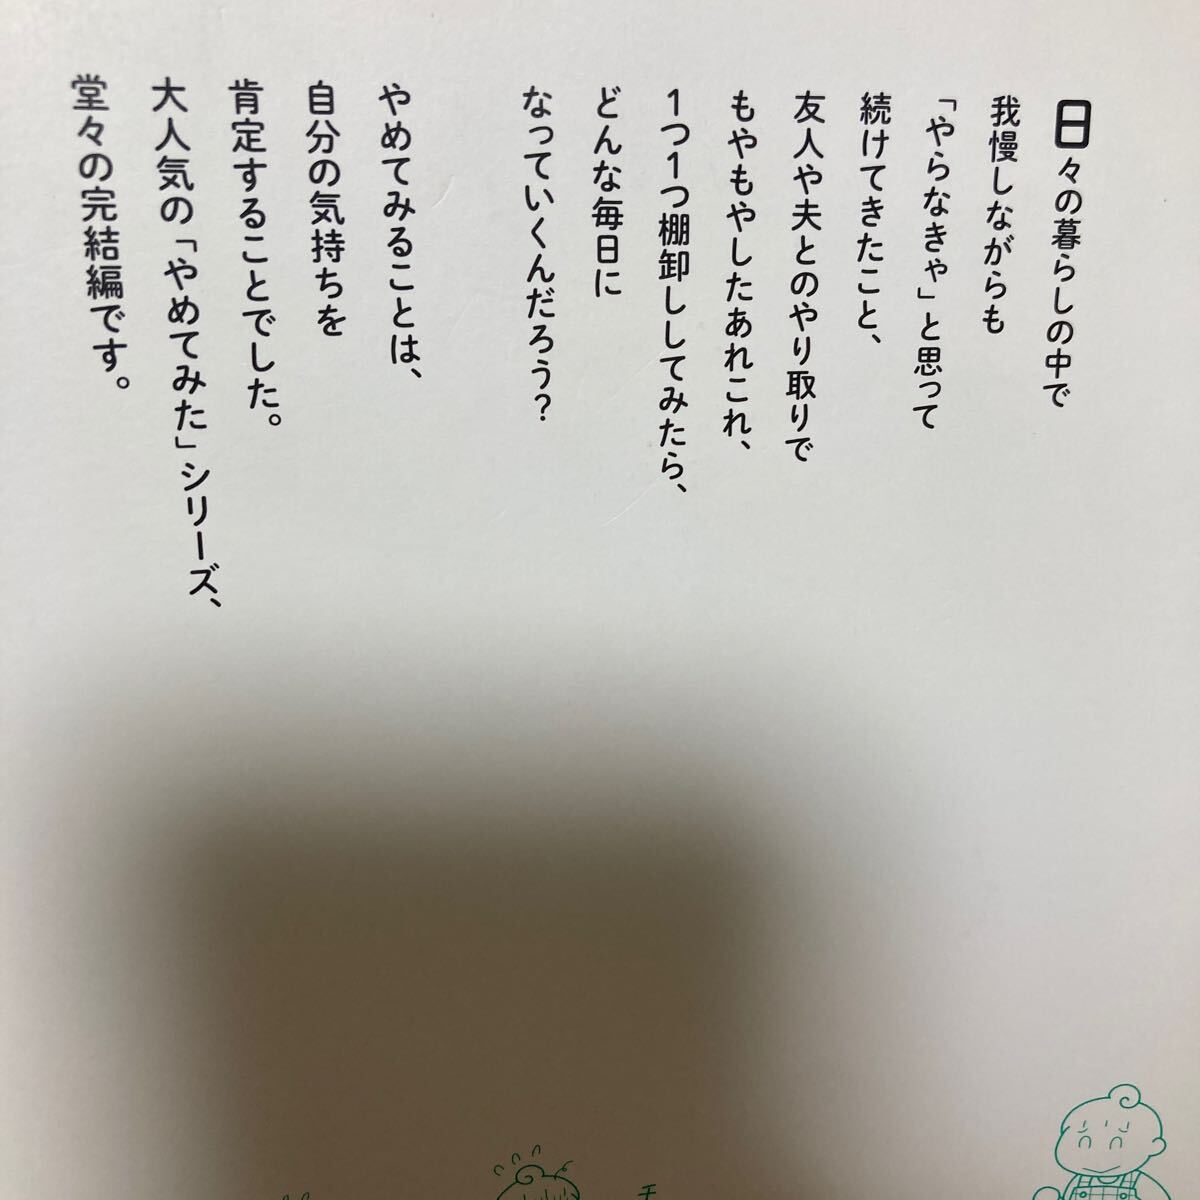 日々の暮らしの中で
我慢しながらも
「やらなきゃ」と思って
続けてきたこと、
友人や夫とのやり取りで
もやもやしたあれこれ、
1つ1つ棚卸ししてみたら、
どんな毎日に
なっていくんだろう？
やめてみることは、
自分の気持ちを
肯定することでした。
大人気の「やめてみた」シリーズ、
堂々の完結編です。